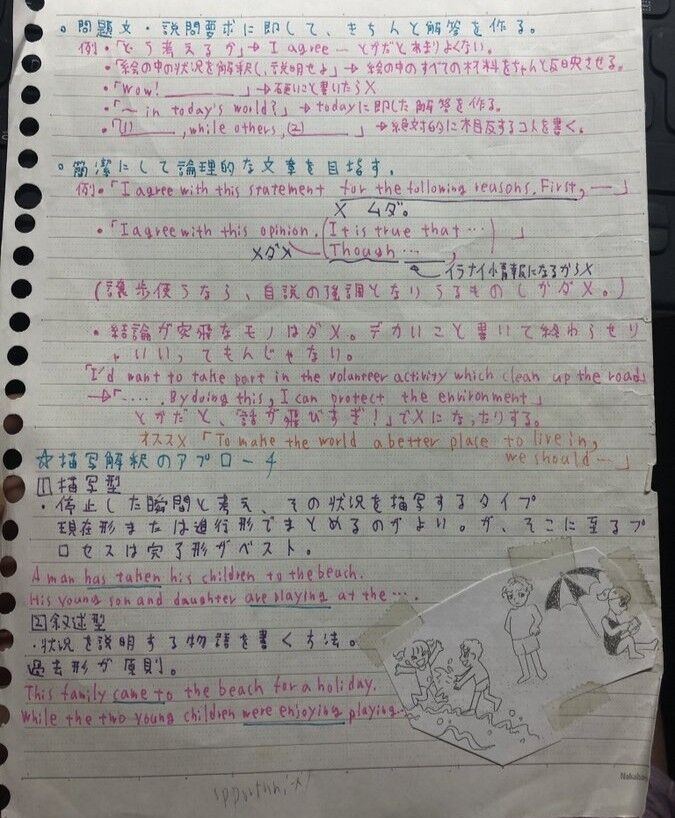 。問題文・設問要求に即して、きちんと解答を作る。
例・「どう考えるか」→ I agree ー とかだとあまりよくない。
・「絵の中の状況を解釈し、説明せよ」→ 絵の中のすべての材料をちゃんと反映させる。
・「Wow! ______」→ 短いこと書いたら×
・「〜 in today's world?」→ todayに即した解答を作る。
・「(1)______, while others, (2)______」→ 絶対的に相反するコトを書く。
。簡潔にして論理的な文章を目指す。
例・「I agree with this statement for the following reasons. First, ー」
× ムダ。
・「I agree with this opinion. (It is true that …) 」
ダメ
(Though … ___,)
イラナイ情報になるから×
(譲歩使うなら、自説の強調となりうるものしかダメ。)
・結論が突飛なモノはダメ。デカいこと書いて終わらせり
ゃいいってもんじゃない。
「I'd want to take part in the volunteer activity which clean up the roads
→「‥‥. By doing this, I can protect the environment」
とかだと、「話が飛びすぎ!」で×になったりする。
オススメ「To make the world a better place to live in,
we should ー」
☆描写解釈のアプローチ
1 描写型
・停止した瞬間と考え、その状況を描写するタイプ
現在形または進行形でまとめるのがよい。が、そこに至るプ
ロセスは完了形がベスト。
A man has taken his children to the beach.
His young son and daughter are playing at the ….
2 叙述型
・状況を説明する物語を書く方法。
過去形が原則。
This family came to the beach for a holiday.
While the two young children were enjoying playing…